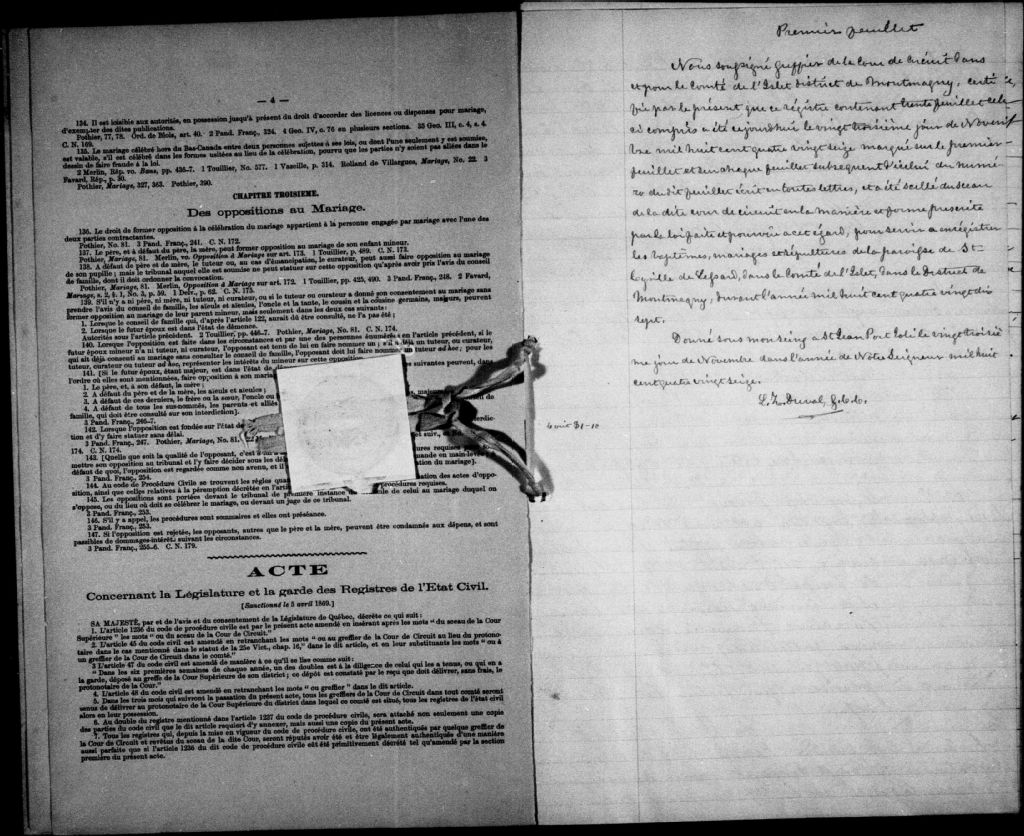 — 4 —
134. Il est loisible aux autorités, en possession jusqu'à présent du droit d'accorder des licences ou dispenses pour mariage,
d'exempter des dites publications.
Pothier, 77, 78. Ord. de Blois, art. 40. 2 Pand. Franç., 324. 4 Geo. IV, c. 76 en plusieurs sections. 35 Geo. III, c. 4, s. 4.
C. N. 169.
135. Le mariage célébré hors du Bas-Canada entre deux personnes sujettes à ses lois, ou dont l'une seulement y est soumise,
est valable, s'il est célébré dans les formes usitées au lieu de la célébration, pourvu que les parties n'y soient pas allées dans le
dessin de faire fraude à la loi.
2 Merlin, Rép. vo. Bans, pp. 436-7. 1 Touillier, No. 577. 1 Vazeille, p. 314. Rolland de Villargues, Mariage, No. 22. 3
Favard, Rép., p. 30.
Pothier, Mariage, 327, 363. Pothier, 390.
CHAPITRE TROISIEME.
Des oppositions au Mariage.
136. Le droit de former opposition à la célébration du mariage appartient à la personne engagée par mariage avec l'une des
deux parties contractantes.
Pothier, No. 81. 3 Pand. Franç., 241. C. N. 172.
137. Le père, et à défaut du père, la mère, peut former opposition au mariage de son enfant mineur.
Pothier, Mariage, 81. Merlin, vo. Opposition à Mariage sur art. 173. 1 Touillier, p. 489. C. N. 173.
138. A défaut de père et de mère, le tuteur ou, au cas d'émancipation, le curateur, peut aussi faire opposition au mariage
de son pupille; mais le tribunal auquel elle est soumise ne peut statuer sur cette opposition qu'après avoir pris l'avis du conseil
de famille, dont il doit ordonner la convocation.
Pothier, Mariage, 81. Merlin, Opposition à Mariage sur art. 172. 1 Touillier, pp. 425, 490. 3 Pand. Franç., 248. 2 Favard,
Mariage, s. 2, § 1, No. 3, p. 59. 1 Delv., p. 62. C. N. 175.
139. S'il n'y a ni père, ni mère, ni tuteur, ni curateur, ou si le tuteur ou curateur a donné son consentement au mariage sans
prendre l'avis du conseil de famille, les aïeuls et aïeules, l'oncle et la tante, le cousin et la cousine germains, majeurs, peuvent
former opposition au mariage de leur parent mineur, mais seulement dans les deux cas suivants:
1. Lorsque le conseil de famille qui, d'après l'article 122, aurait dû être consulté, ne l'a pas été;
2. Lorsque le futur époux est dans l'état de démence.
Autorités sous l'article précédent. 2 Touillier, pp. 446-7. Pothier, Mariage, No. 81. C. N. 174.
140. Lorsque l'opposition est faite dans les circonstances et par une des personnes énoncées en l'article précédent, si le
futur époux mineur n'a ni tuteur, ni curateur, l'opposant est tenu de lui en faire nommer un; s'il a déjà un tuteur, ou curateur,
qui ait déjà consenti au mariage sans consulter le conseil de famille, l'opposant doit lui faire nommer un tuteur ad hoc; pour les
tuteur, curateur ou tuteur ad hoc, représenter les intérêts du mineur sur cette opposition.
141. [Si le futur époux, étant majeur, est dans l'état de dé suivantes peuvent, dans
l'ordre où elles sont mentionnées, faire opposition à son maria
1. Le père, et, à son défaut, la mère;
2. A défaut du père et de la mère, les aïeuls et aïeules;
3. A défaut de ces derniers, le frère ou la sœur, l'oncle ou
4. A défaut de tous les sus-nommés, les parents et alliés
famille, qui doit être consulté sur son interdiction].
3 Pand. Franç., 246-7.
142. Lorsque l'opposition est fondée sur l'état de
tion et d'y faire statuer sans délai.
3 Pand. Franç., 247. Pothier, Mariage, No. 81.
174. C. N. 174.
143. [Quelle que soit la qualité de l'opposant, c'est à lui à
mettre son opposition au tribunal et l'y faire décider sous les dé
défaut de quoi, l'opposition est regardée comme non avenue, et il tion du mariage].
3 Pand. Franç., 254.
144. Au code de Procédure Civile se trouvent les règles qua ation des actes d'oppo-
sition, ainsi que celles relatives à la péremption décrétée en l'arti procédures requises.
145. Les oppositions sont portées devant le tribunal de première instance le de celui au mariage duquel on
s'oppose, ou du lieu où doit se célébrer le mariage, ou devant un juge de ce tribunal.
3 Pand. Franç., 253.
146. S'il y a appel, les procédures sont sommaires et elles ont préséance.
3 Pand. Franç., 253.
147. Si l'opposition est rejetée, les opposants, autres que le père et la mère, peuvent être condamnés aux dépens, et sont
passibles de dommages-intérêts suivant les circonstances.
3 Pand. Franç., 255-6. C. N. 179.
ACTE
Concernant la Législature et la garde des Registres de l'Etat Civil.
[Sanctionné le 5 avril 1869.]
SA MAJESTÉ, par et de l'avis et du consentement de la Législature de Québec, décrète ce qui suit:
1. L'article 1236 du code de procédure civile est par le présent acte amendé en insérant après les mots "du sceau de la Cour
Supérieure" les mots "ou du sceau de la Cour de Circuit."
2. L'article 45 du code civil est amendé en retranchant les mots "ou au greffier de la Cour de Circuit au lieu du protono-
taire dans le cas mentionné dans le statut de la 25e Vict., chap. 16," dans le dit article, et en leur substituant les mots "ou à
un greffier de la Cour de Circuit dans le comté."
3 L'article 47 du code civil est amendé de manière à ce qu'il se lise comme suit:
"Dans les six premières semaines de chaque année, un des doubles est à la diligence de celui qui les a tenus, ou qui en a
la garde, déposé au greffe de la Cour Supérieure de son district; ce dépôt est constaté par le reçu que doit délivrer, sans frais, le
protonotaire de la Cour."
4. L'article 48 du code civil est amendé en retranchant les mots "ou greffier" dans le dit article.
5. Dans les trois mois qui suivront la passation du présent acte, tous les greffiers de la Cour de Circuit dans tout comté seront
tenus de délivrer au protonotaire de la Cour Supérieure du district dans lequel ce comté est situé, tous les registres de l'état civil
alors en leur possession.
6. Au double du registre mentionné dans l'article 1237 du code de procédure civile, sera attaché non seulement une copie
des parties du code civil que le dit article requiert d'y annexer, mais aussi une copie du présent acte.
7. Tous les registres qui, depuis la mise en vigueur du code de procédure civile, ont été authentiqués par quelque greffier de
la Cour de Circuit et revêtus du sceau de la dite Cour, seront réputés avoir été et être légalement authentiqués d'une manière
aussi parfaite que si l'article 1236 du dit code de procédure civile eût été primitivement décrété tel qu'amendé par la section
première du présent acte.
Premier feuillet
Nous soussigné greffier de la Cour de circuit dans
et pour le Comté de l'Islet district de Montmagny, certi
fie par le présent que ce régistre contenant trente feuillet celui
ci compris a été ce jourd'hui le vingt troisième jour de Novem
bre mil huit cent quatre vingt seize marqué sur le premier
feuillet et sur chaque feuillet subsequent d'icelui du numé
ro du dit feuillet écrit en toutes lettres, et a été scellé du sceau
de la dite cour de circuit en la manière et forme prescrite
par la loi faite et pourvue à cet égard, pour servir a enrégistrer
les baptemes, mariages et sépultures de la paroisse de St
Cyrille de Lessard, dans le Comté de l'Islet, dans le District de
Montmagny, durant l'année mil huit cent quatre vingt dix
sept.
Donné sous mon seing a St Jean Port Joli le vingt troisiè
me jour de Novembre dans l'année de Notre Seigneur mil huit
cent quatre vingt seize.
L. Z. Duval, g. c. c.